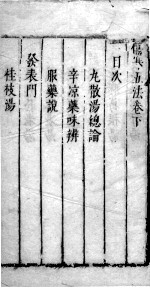 傷寒五法卷下
目次
丸散湯總論
辛凉藥味辨
服藥說
發表門
桂枝湯